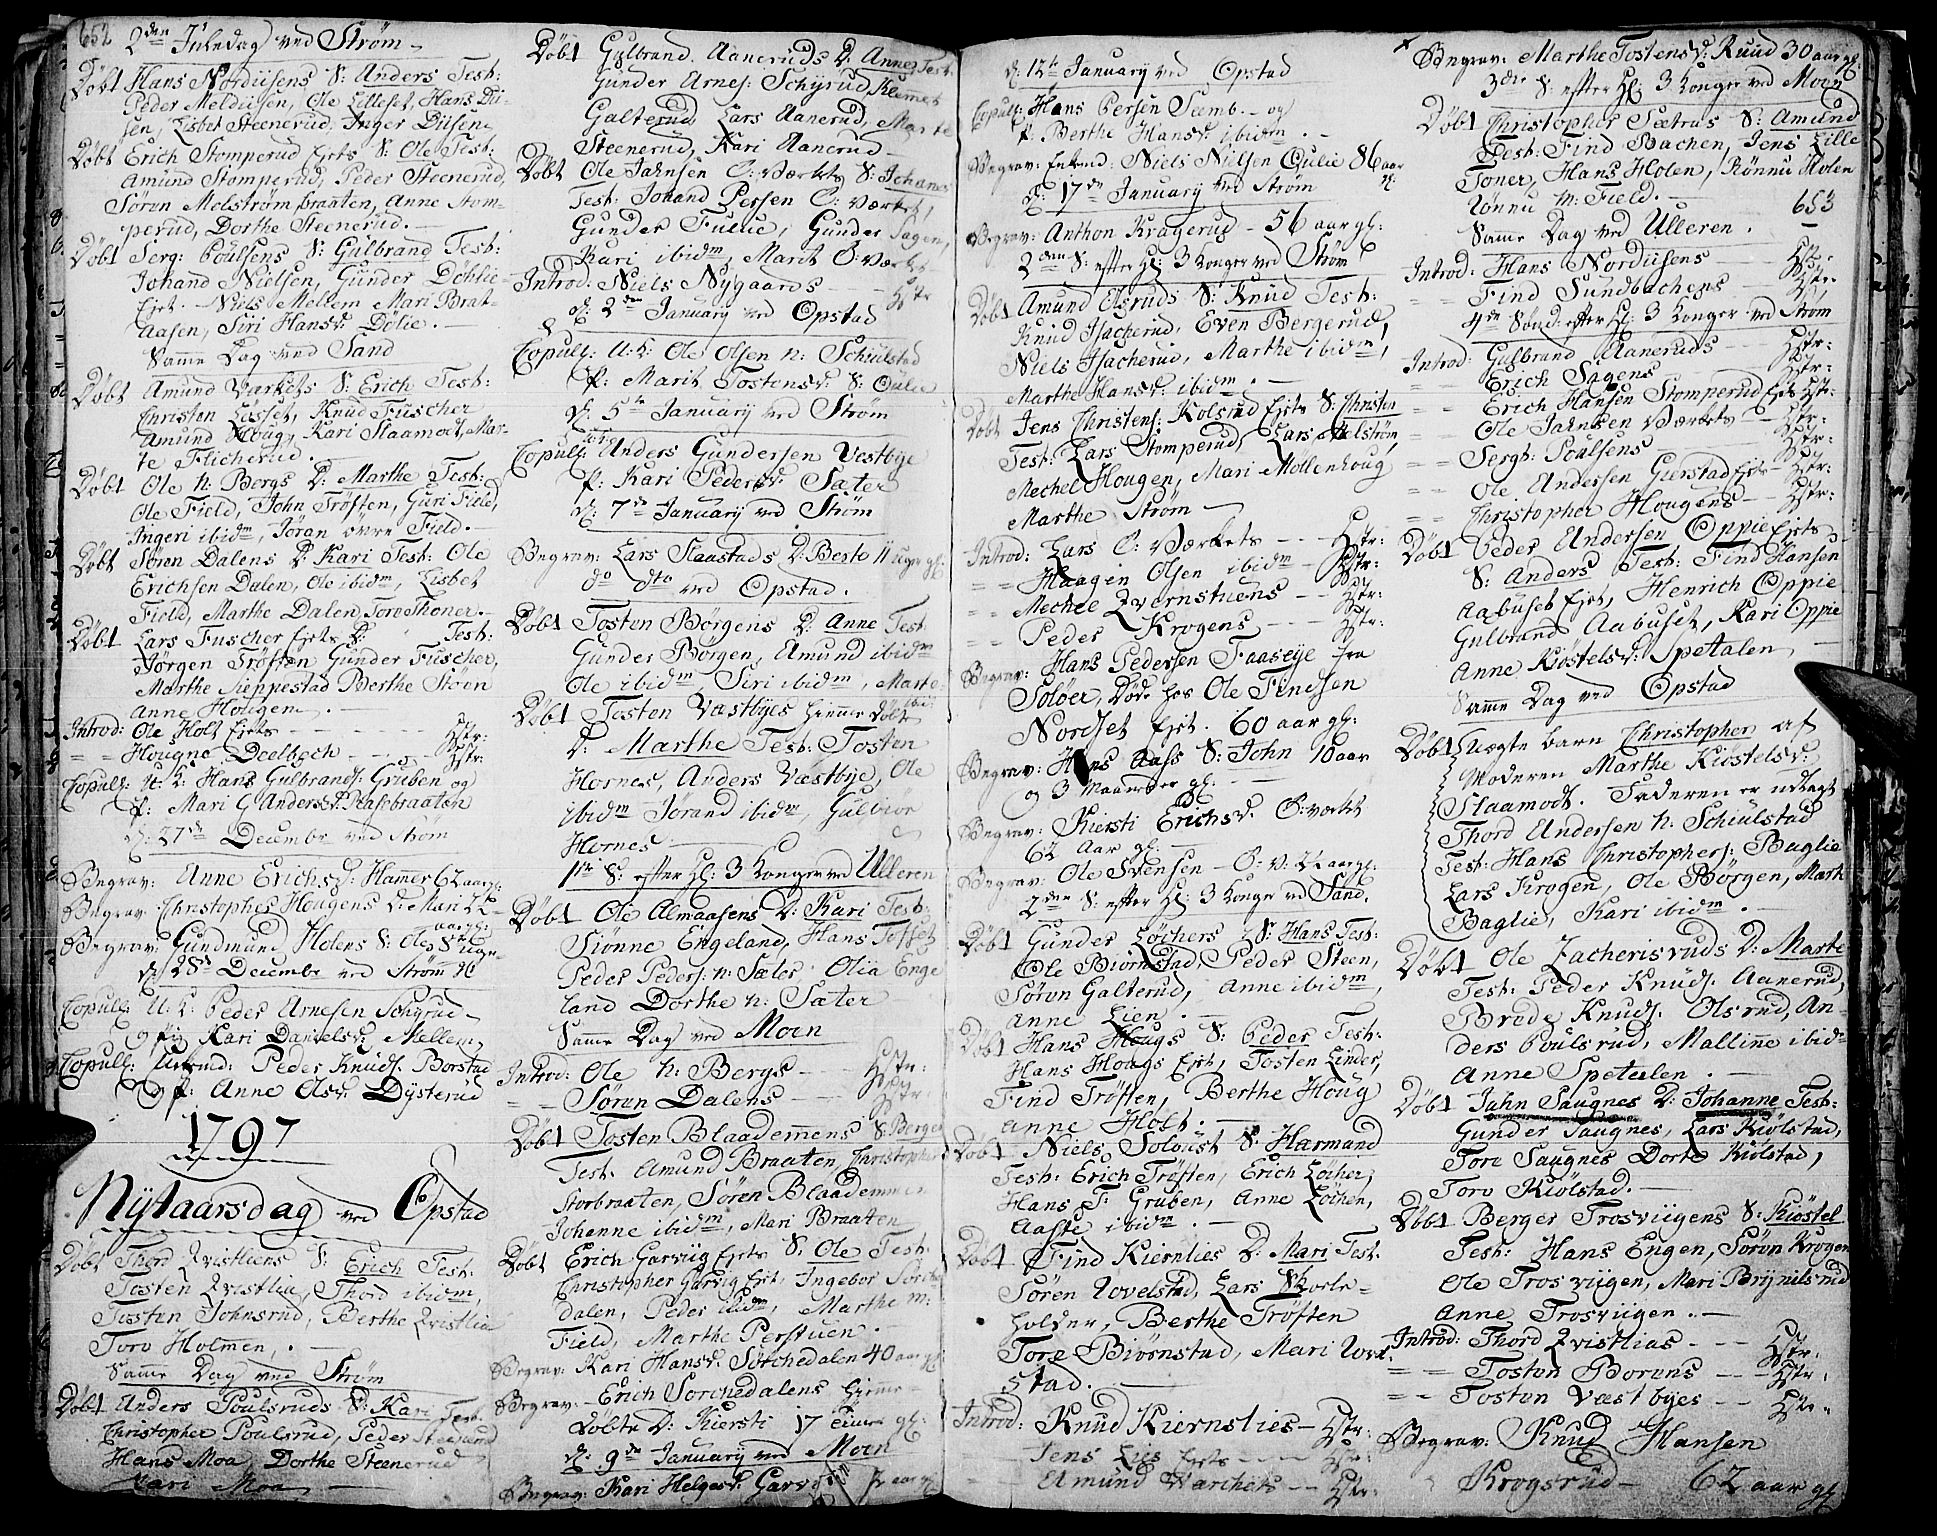 652
2den Juledag ved Strøm
Døbt Hans Nordiisens S: Anders Test:
Peder Meldiisen, Ole Lilleset, Hans Dii-
sen, Lisbet Steenerud, Inger Diisen
Døbt Erich Stomperud Ejets S: Ole Test:
Amund Stomperud, Peder Steenerud,
Søren Molstrøm braaten, Anne Stom-
perud, Dorthe Steenerud.
Døbt Serg: Poulsens S: Gulbrand Test:
Johand Nielsen, Gunder Døhlie
Ejet. Niels Mellem Mari Brat-
aasen, Siri Hansd: Dølie.
Samme Dag ved Sand
Døbt Amund Varkets S: Erich Test:
Christen Losset, Knud Fuscher
Amund Houg, Kari Slaamodt, Mar-
te Flicherud.
Døbt Ole n: Bergs D: Marthe Test:
Ole Field, John Trøften, Guri Field,
Ingeri ibidm, Jøran øvre Field.
Døbt Søren Dalens D: Kari Test: Ole
Erichsen Dalen, Ole ibidm, Lisbet
Field, Marthe Dalen, Tore Thoner.
Døbt Lars Fuscher Ejets D: Test:
Jørgen Trøften Gunder Fuscher,
Marthe Seppestad Berthe Steen
Anne Hougen.
Introd: Ole Holt Ejets Hstr:
Hougne Deelbech Hstr:
Copul: U: K: Hans Gulbrands: Gruben og
P: Mari G Andersd: Raasbraaten
d: 27de Decembr ved Strøm
Begrav: Anne Erichsd: Hamer 62 aar g:
Begrav: Christopher Hougens D: Mari
aar gl:
Begrav: Gundmund Holens S: Ole 8 uger
d: 28de Decembr ved Strøm
Copul: U: K: Peder Arnesen Schyrud
og Pig Kari Danielsd: Mellem
Copul: Enkemd: Peder Knuds: Borstad
og P: Anne Olsd: Dysterud
1797
Nytaarsdag ved Opstad
Døbt Thord Qvistliens S: Erich Test:
Tosten Qvistlie, Thord ibidm,
Tosten Johnsrud, Berthe Qvistlie
Toro Holmen,
Samme Dag ved Strøm
Døbt Anders Poulsruds D: Kari Test:
Christopher Poulsrud, Peder Steenerud
Hans Moa, Dorthe Steenerud
Mari Moa
Døbt Gulbrand Aaneruds D: Anne Test:
Gunder Arnes: Schyrud, Klemmet
Galterud, Lars Aanerud, Marte
Steenerud, Kari Aanerud
Døbt Ole Jahnsen O: Værkets S: Johannes
Test: Johand Persen O: værket,
Gunder Fulue, Gunder Sagen,
Kari ibidm, Marit O: Værket
Introd: Niels Nygaards Hstr
d: 2den January ved Opstad
Copul: U: K: Ole Olsen n: Schiulstad
P: Marit Tostensd: S: Qulie
d: 5te January ved Strøm
Copul: Anders Gundersen Vestbye
P: Kari Pedersd: Sæter
d: 7de January ved Strøm
Begrav: Lars Slaastads D: Berte 11 uger gl:
do dto ved Opstad.
Døbt Tosten Børgens D: Anne Test:
Gunder Børgen, Amund ibidm
Ole ibidm, Siri ibidm, Marte
ibi:
Døbt Tosten Væstbyes hjemme Døbt
D: Marthe Test: Tosten
Hornes, Anders Væstbye, Ole
ibidm Jørand ibidm, Gulbior
Hornes
1te S: efter Hl: 3 Konger ved Ulleren
Døbt Ole Almaasens D: Kari Test:
Siønne Engeland, Hans Tofset
Peder Peders: n: Sæter Olia Enge
land Dorthe n: Sæter
Samme Dag ved Moen
Introd: Ole n: Bergs Hstr:
Søren Dalens Hstr:
Døbt Tosten Blaademmens S: Berger
Test: Amund Braaten, Christopher
Storbraaten, Søren Blaademmen
Johanne ibidm, Mari Braaten
Døbt Erich Garviig Ejets S: Ole Test:
Christopher Garvig Ejet, Ingebor Sorche
dalen, Peder ibidm, Marthe m:
Field, Marthe Perstuen.
Begrav: Kari Hansd: Sorchedalen 40 aar gl:
Begrav: Erich Sorchedalens hjemme-
døbte D: Kiersti 17 uger gl:
d: 9de January ved Moen
Begrav: Kari Helgesd: Garviigen aar gl:
d: 12te January ved Opstad
Copul: Hans Persen Semb. og
P: Berthe Hansd: ibidm.
Begrav: Enkemd: Niels Nielsen Qulie 86 aar
gl:
d: 17de January ved Strøm
Begrav: Anthon Kragerup 56 aar gl:
2den S: efter Hl: 3 Konger ved Strøm
Døbt Amund Olsruds S: Knud Test:
Knud Hacherud, Even Bergerud,
Niels Hacherud, Marthe ibidm,
Marthe Hansd: ibidm.
Døbt Jens Christens: Kolsrud Ejets S: Christen
Test: Lars Stomperud, Lars Melstrøm
Mechel Hougen, Mari Mollenhoug
Marthe Strøm
Introd: Lars O: Værkets Hstr:
Haagen Olsen ibidm Hstr:
Mechel Qvernstuens Hstr:
Peder Krogens Hstr:
Begrav: Hans Pedersen Faaseye fra
Soløer, Døde hos Ole Findsen
Nordset Ejet. 60 aar gl:
Begrav: Hans Aass S: John 10 aar
og 3 Maaneder gl:
Begrav: Kiersti Erichsd: O: værket
62 Aar gl:
Begrav: Ole Svensen O: V: 22 aar gl:
2den S: efter Hl: 3 Konge ved Sand.
Døbt Gunder Løchers S: Hans Test:
Ole Biørnstad, Peder Steen,
Søren Galterud, Anne ibidm,
Anne Lien.
Døbt Hans Hougs S: Peder Test:
Hans Hougs Ejet, Tosten Linder,
Find Trøften, Berthe Houg
Anne Holt.
Døbt Niels Soloust S: Harmand
Test: Erich Trøften, Erich Løcher,
Hans F: Gruben, Anne Løchen,
Aaste ibidm.
Døbt Find Kiernlies D: Mari Test:
Søren Uovelstad, Lars Skorle-
holder, Berthe Trøften
Tore Biørnstad, Mari Uovel-
stad.
Introd: Knud Kiernslies Hstr:
Jens Lies Ejets Hstr:
Amund Varchets Hstr:
Begrav: Marthe Tostensd: Ruud 30 aar gl:
3die S: efter Hl: 3 Konger ved Moen
Døbt Christopher Sætrus S: Amund
Test: Find Bachen, Jens Lille
Toner, Hans Holen, Rønnu Holen
Rønnu m: Field.
653
Samme Dag ved Ulleren.
Introd: Hans Nordiisens Hstr:
Find Sundbachens Hstr:
4de Sønd: efter Hl: 3 Konger ved Strøm
Introd: Gulbrand Aaneruds Hstr:
Erich Sagens Hstr:
Erich Hansen Stomperud Ejet Hstr:
Ole Jahnsen Værkets Hstr:
Sergt: Poulsens Hstr:
Ole Andersen Gierstad Ejets Hstr:
Christopher Hougens Hstr:
Døbt Peder Andersen Oppie Ejets
S: Anders Test: Find Hansen
Aabuset Ejet, Henrich Oppie
Gulbrand Aabuset, Kari Oppie
Anne Kiøstelsd: Spetalen,
Samme Dag ved Opstad
Døbt Uægte barn Christopher af
Moderen Marthe Kiøstelsd:
Slaamodt. Faderen er udlagt
Thord Andersen n: Schiulstad
Test: Hans Christophers: Baglie
Lars Krogen, Ole Børgen, Marth
Baglie, Kari ibidm.
Døbt Ole Zacherisruds D: Marte
Test: Peder Knuds: Aanerud,
Brede Knuds: Olsrud, An-
ders Poulsrud, Malline ibidm
Anne Spetalen.
Døbt Jahn Saugnes D: Johanne Test:
Gunder Saugnes, Lars Kiølstad,
Tore Saugnes Dorte Kiølstad,
Toro Kiølstad.
Døbt Berger Trosviigens S: Kiøstel
Test: Hans Engen, Søren Krogen
Ole Trosviigen, Mari Brynilsrud
Anne Trosviigen.
Introd: Thord Qvistlias Hstr:
Tosten Borens Hstr:
Tosten Væstbyes Hstr:
Begrav: Knud Hansen
Krogsrud 62 aar gl